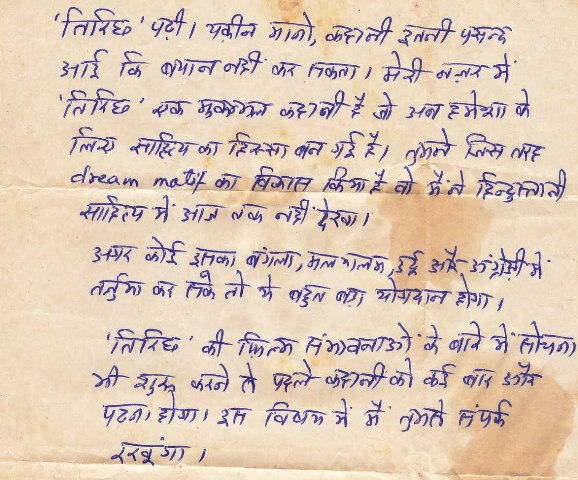 'तिरिछ' पढ़ी। यक़ीन मानो, कहानी इतनी पसन्द
आई कि बयान नहीं कर सकता। मेरी नज़र में
'तिरिछ' एक मुकम्मल कहानी है जो अब हमेशा के
लिए साहित्य का हिस्सा बन गई है। तुमने जिस तरह
dream motif का विकास किया है वो मैंने हिन्दुस्तानी
साहित्य में आज तक नहीं देखा।
अगर कोई इसका बंगला, मलयालम, उर्दू और अंग्रेज़ी में
तर्जुमा कर सके तो ये बहुत बड़ा योगदान होगा।
'तिरिछ' की फिल्म संभावनाओं के बारे में सोचना
भी शुरू करने से पहले कहानी को कई बार और
पढ़ना होगा। इस विषय में मैं तुमसे संपर्क
रखूंगा।